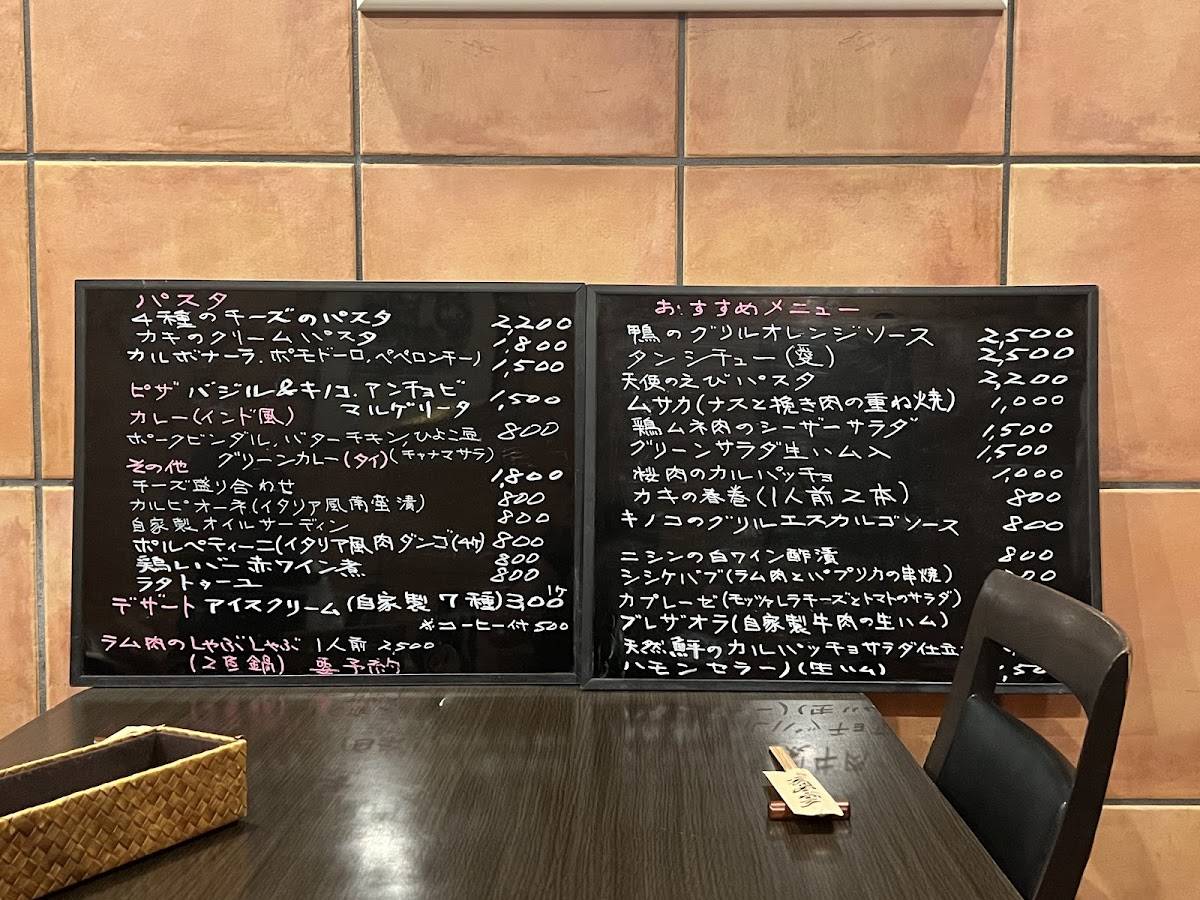 パスタ
4種のチーズのパスタ 2,200
カキのクリームパスタ 1,800
カルボナーラ.ポモドーロ.ペペロンチーノ 1,500
ピザ バジル&キノコ.アンチョビ
マルゲリータ 1,500
カレー(インド風)
ポークビンダル.バターチキン.ひよこ豆 800
グリーンカレー(タイ)(チャナマサラ)
その他
チーズ盛り合わせ 1,800
カルピオーネ(イタリア風南蛮漬) 800
自家製オイルサーディン 800
ポルペティーニ(イタリア風肉ダンゴ(4ケ) 800
鶏レバー赤ワイン煮 800
ラタトゥーユ 800
デザート アイスクリーム(自家製7種)300 1ケ
※コーヒー付500
ラム肉のしゃぶしゃぶ 1人前 2500
(2色鍋) 要予約
おすすめメニュー
鴨のグリルオレンジソース 2,500
タンシチュー 2,500
天使のえびパスタ 2,200
ムサカ(ナスと挽き肉の重ね焼) 1,000
鶏ムネ肉のシーザーサラダ 1,500
グリーンサラダ生ハム入 1,500
桜肉のカルパッチョ 1,000
カキの春巻(1人前2本) 800
キノコのグリルエスカルゴソース 800
ニシンの白ワイン酢漬 800
シシケバブ(ラム肉とパプリカの串焼)
カプレーゼ(モッツァレラチーズとトマトのサラダ)
ブレザオラ(自家製牛肉の生ハム)
天然鮃のカルパッチョサラダ仕立
ハモンセラーノ(生ハム)